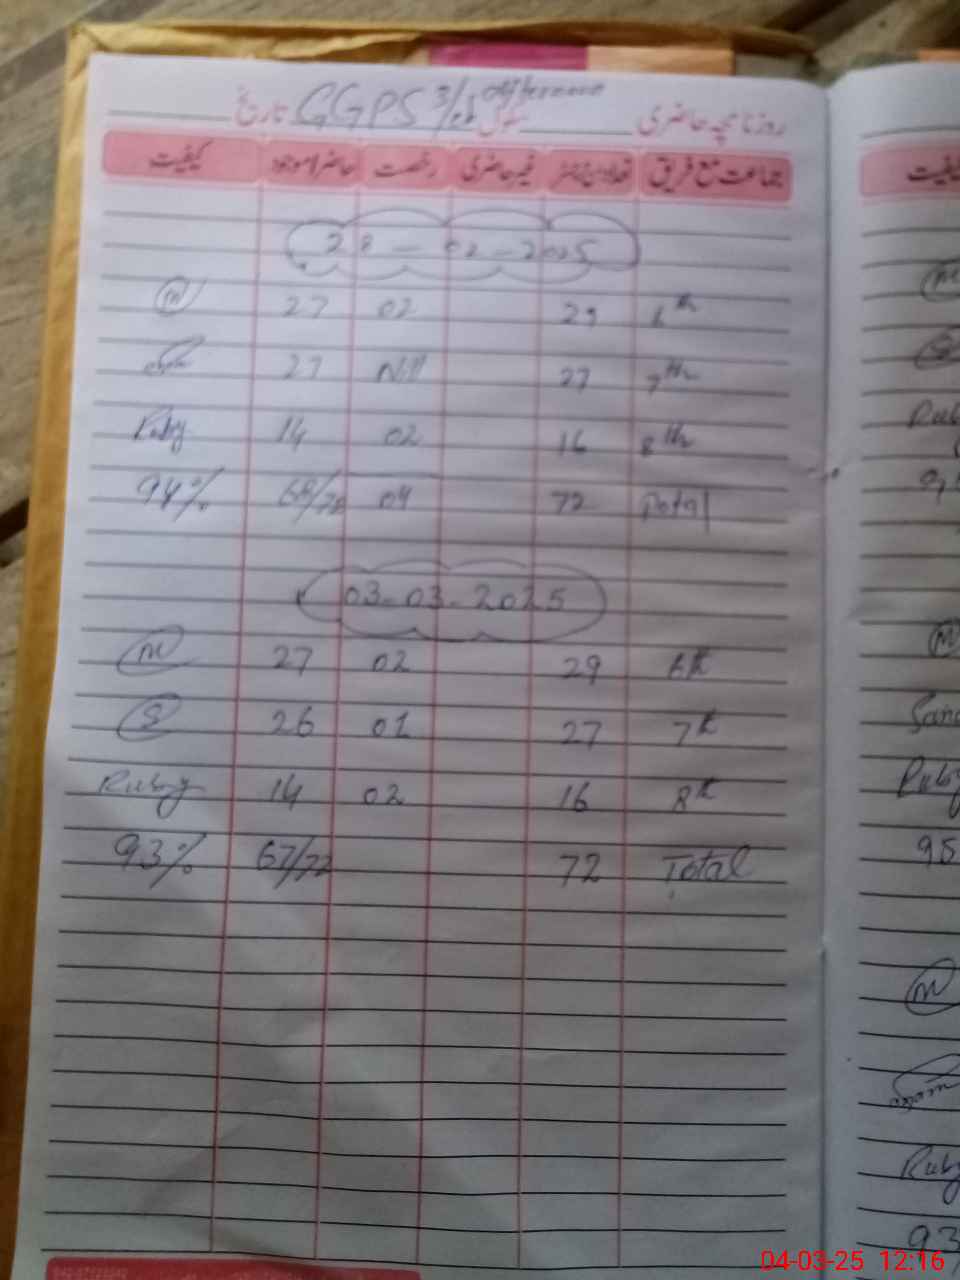 روزنامچہ حاضری سکول GGPS تاریخ
جماعت مع فریق تعداد مندرجہ رجسٹر غیر حاضری رخصت حاضر/موجود کیفیت
28-02-2025
6th 29 02 27 M
7th 27 Nill 27
8th 16 02 14 Ruby
Total 72 04 68/72 94%
03-03-2025
6th 29 02 27 M
7th 27 01 26 S
8th 16 02 14 Ruby
Total 72 67/72 93%
M
Ruby
M
Ruby
04-03-25 12:16